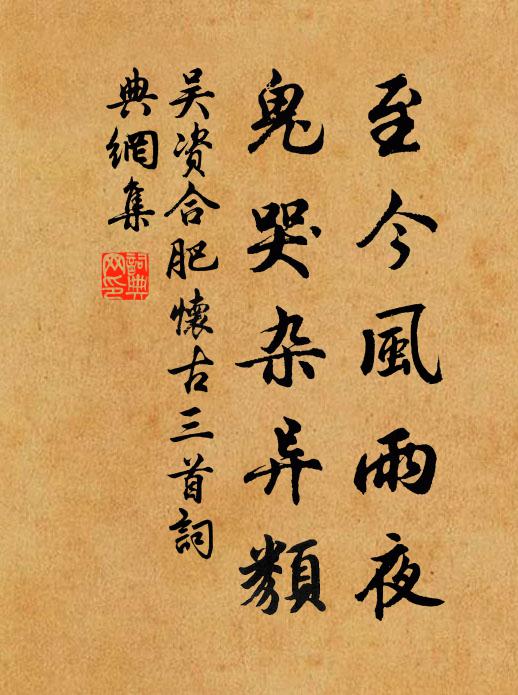 至今風雨夜
鬼哭杂异類
吴资合肥懷古三首詞
典網集
詞典
网印